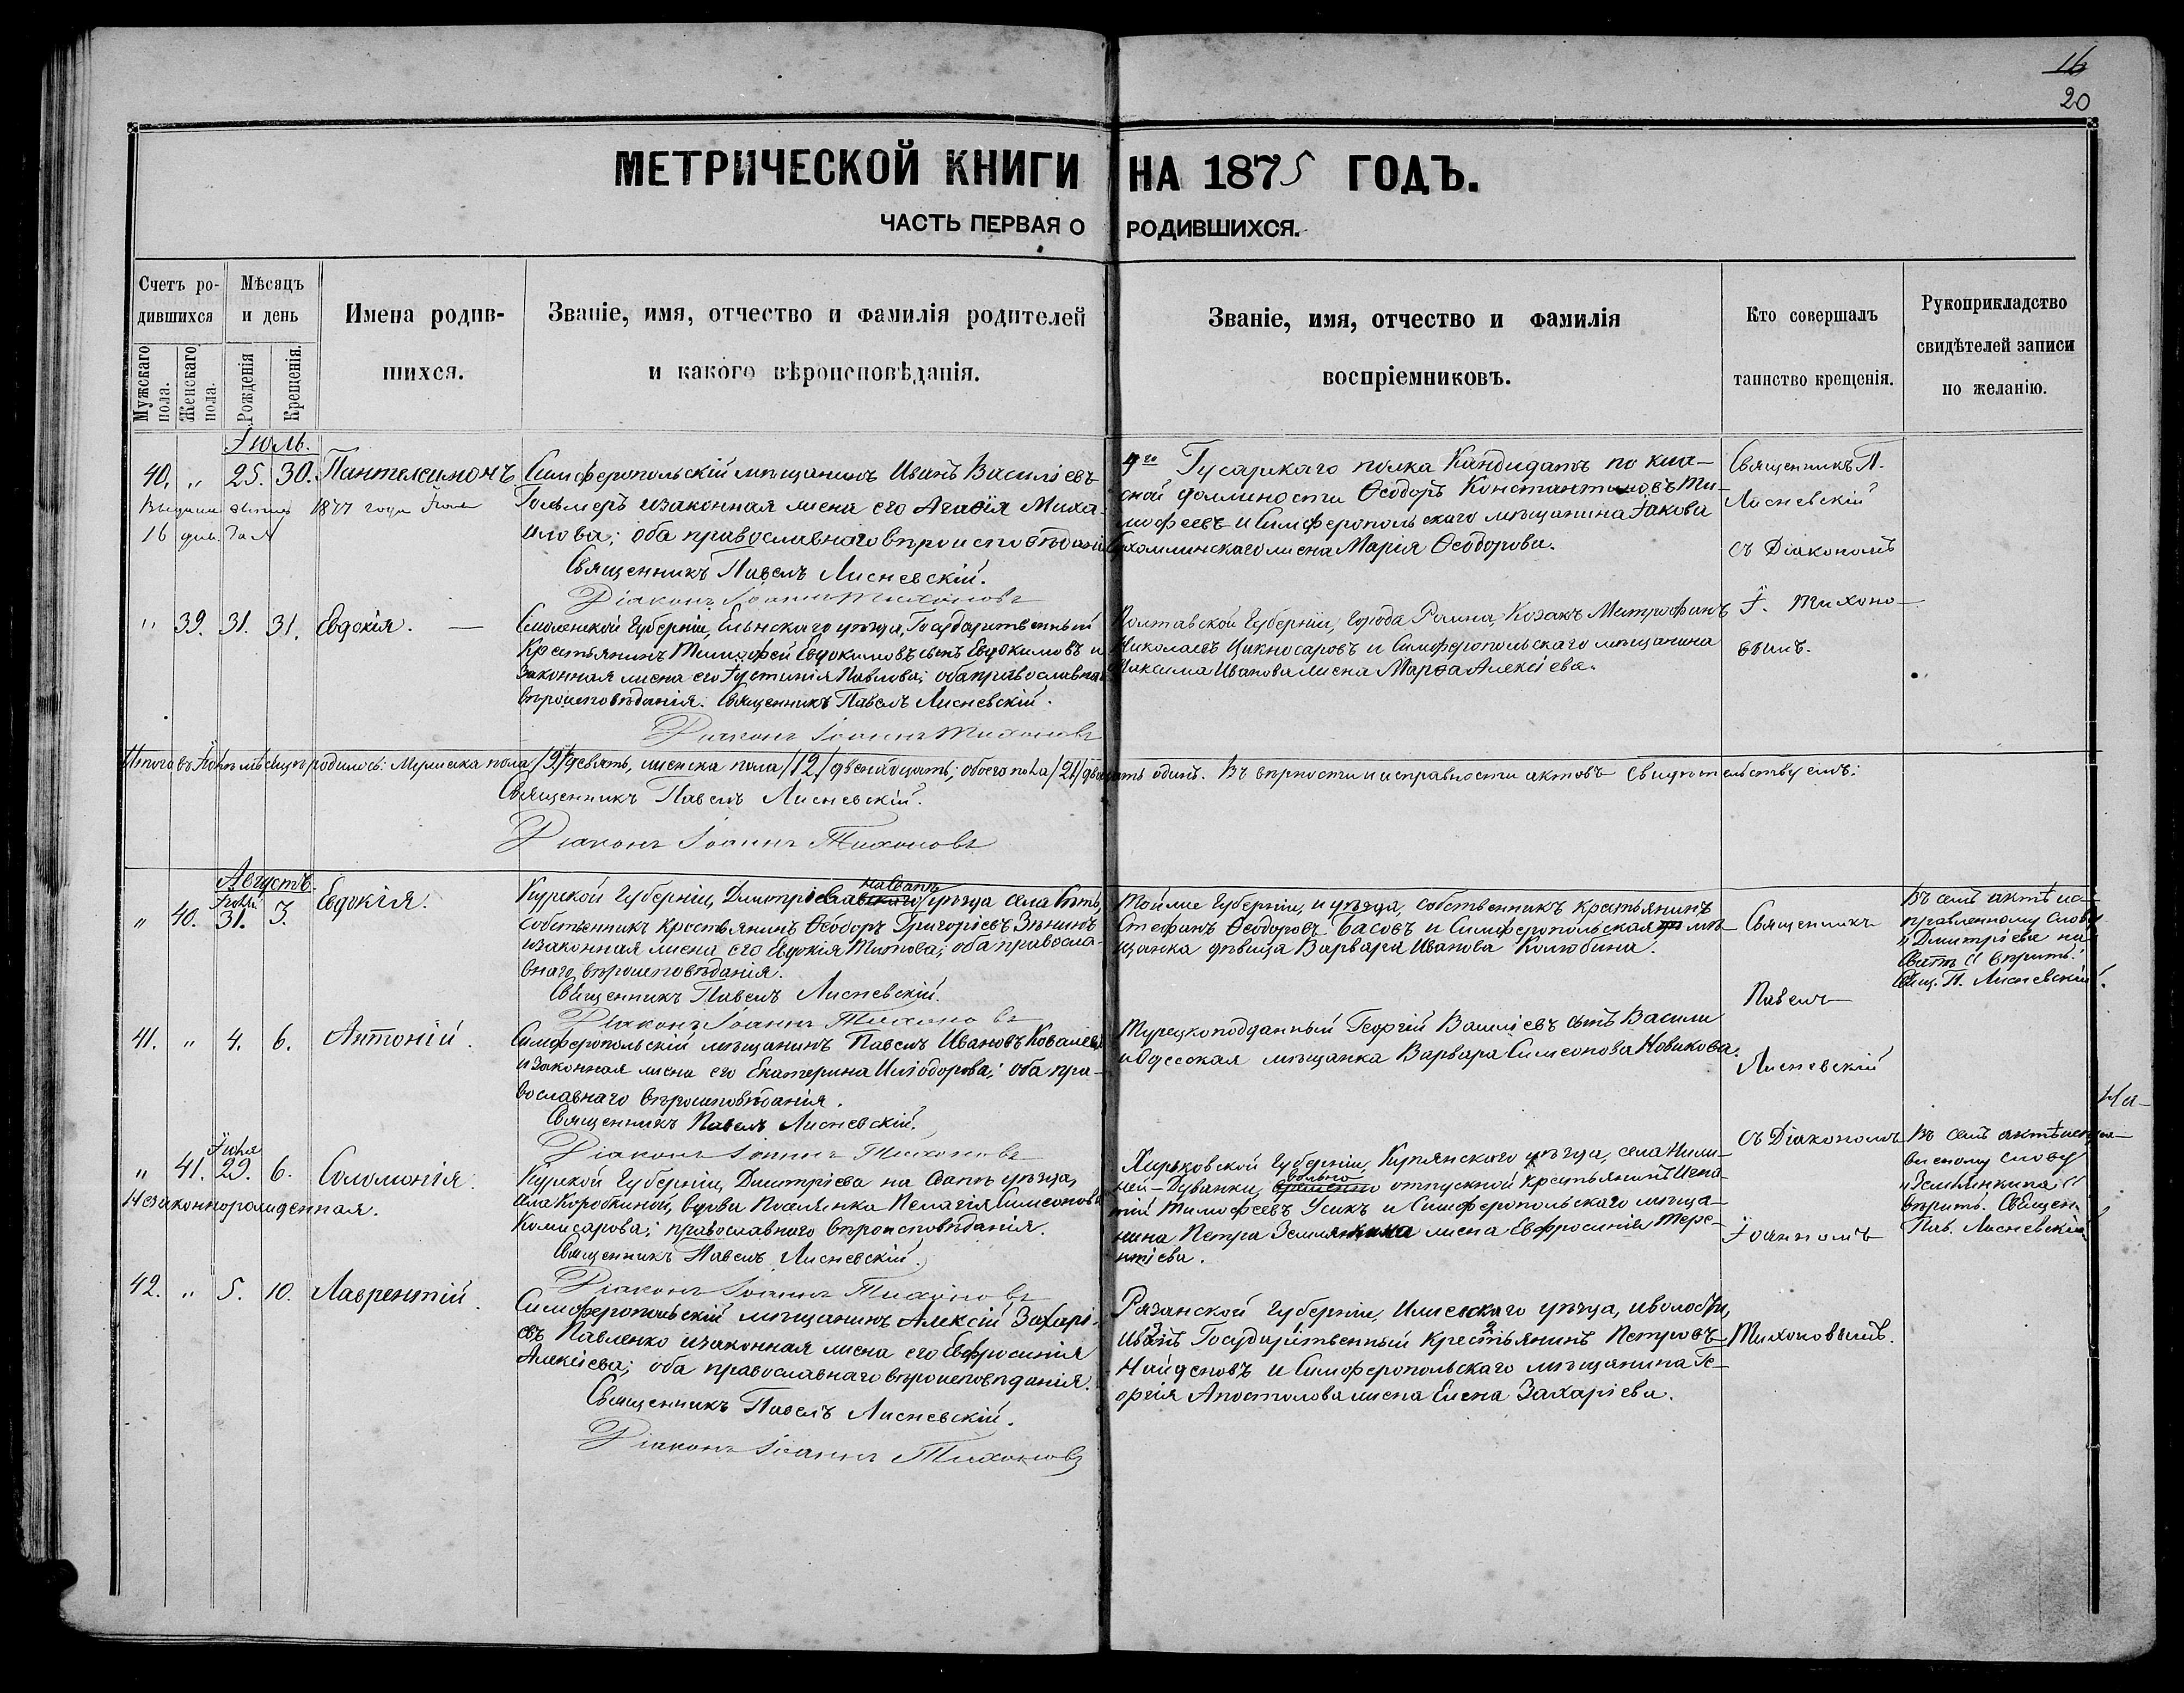 16
20
МЕТРИЧЕСКОЙ КНИГИ НА 1875 ГОДЪ.
ЧАСТЬ ПЕРВАЯ О РОДИВШИХСЯ.
Счетъ ро-
дившихся
Мужскаго пола.
Женскаго пола.
Мѣсяцъ
и день
Рожденія
Крещенія.
Имена родив-
шихся.
Званіе, имя, отчество и фамилія родителей
и какого вѣроисповѣданія.
Званіе, имя, отчество и фамилія
воспріемниковъ.
Кто совершалъ
таинство крещенія.
Рукоприкладство
свидѣтелей записи
по желанію.
Іюль.
40. " 25. 30. Пантелеимонъ
1877 года Іюля
16 дня
Симферопольскій мѣщанинъ Иванъ Василіевъ
изаконная жена его Агаѳія Миха-
илова; оба православнаго вѣроисповѣданія
Священникъ Павелъ Лисневскій.
Діаконъ Іоаннъ Тихоновъ
Гусарскаго полка Кандидатъ по клас-
сной должности Ѳеодоръ Константиновъ Ти-
мофеевъ и Симферопольскаго мѣщанина Іакова
жена Марія Ѳеодорова.
Священникъ П.
Лисневскій
съ Діакономъ
І. Тихоно-
вымъ.
" 39. 31. 31. Евдокія. —
Смоленской Губерніи, Ельнскаго уѣзда, Государственный
Крестьянинъ Тимофей Евдокимовъ сынъ Евдокимовъ и
законная жена его Іустинія Павлова; оба православнаго
вѣроисповѣданія. Священникъ Павелъ Лисневскій.
Діаконъ Іоаннъ Тихоновъ
Полтавской Губерніи, города Ромна, Козакъ Митрофанъ
Николаевъ Цикносаровъ и Симферопольскаго мѣщанина
Максима Иванова жена Марѳа Алексіева.
Итого въ Іюлѣ мѣсяцѣ родилось: Мужеска пола /9/ девять, женска пола /12/ двенадцать; обоего пола /21/ двадцать одинъ. Въ вѣрности и исправности актовъ свидѣтельствуемъ:
Священникъ Павелъ Лисневскій.
Діаконъ Іоаннъ Тихоновъ
Августъ.
Іюля
" 40. 31. 3. Евдокія.
на Сватъ
Курской Губерніи, Дмитріева уѣзда села
собственникъ крестьянинъ Ѳеодоръ Григоріевъ Зѣнинъ
изаконная жена его Евдокія Титова; оба правосла-
внаго вѣроисповѣданія.
Священникъ Павелъ Лисневскій.
Діаконъ Іоаннъ Тихоновъ
Той же Губерніи, и уѣзда, собственникъ крестьянинъ
Стефанъ Ѳеодоровъ Басовъ и Симферопольская мѣ-
щанка дѣвица Варвара Иванова Колюбина.
Священникъ
Павелъ
Лисневскій
съ Діакономъ
Іоанномъ
Тихоновымъ.
Въ семъ актѣ ис-
правленному слову
"Дмитріева на
Сватъ" вѣрить.
Свящ. П. Лисневскій.
41. " 4. 6. Антоній.
Симферопольскій мѣщанинъ Павелъ Ивановъ Ковалевъ
изаконная жена его Екатерина Иліодорова; оба пра-
вославнаго вѣроисповѣданія.
Священникъ Павелъ Лисневскій.
Діаконъ Іоаннъ Тихоновъ
Турецкоподданный Георгій Василіевъ сынъ Васили
и Одесская мѣщанка Варвара Симеонова Новикова.
На-
Іюля
" 41. 29. 6. Соломонія.
Незаконнорожденная.
Курской Губерніи, Дмитріева на Сватѣ уѣзда,
села Коробкиной, вдова Поселянка Пелагія Симеонова
Комисарова; православнаго вѣроисповѣданія.
Священникъ Павелъ Лисневскій.
Діаконъ Іоаннъ Тихоновъ
Харьковской Губерніи, Купянскаго уѣзда, села Нижи-
вольно
ней-Дуванки, отпускной крестьянинъ Игна-
тій Тимофеевъ Усикъ и Симферопольскаго мѣща-
нина Петра Землянкина жена Евфросинія Тере-
нтіева.
Въ семъ актѣ
слову
"Землянкина"
вѣрить. Священ.
Пав. Лисневскій
42. " 5. 10. Лаврентій.
Симферопольскій мѣщанинъ Алексій Захарі-
евъ Павленко изаконная жена его Евфросинія
Алексіева; оба православнаго вѣроисповѣданія.
Священникъ Павелъ Лисневскій.
Діаконъ Іоаннъ Тихоновъ
Рязанской Губерніи, уѣзда,
Государственный крестьянинъ Петровъ
Найденовъ и Симферопольскаго мѣщанина Ге-
оргія Апостолова жена Елена Захаріева.